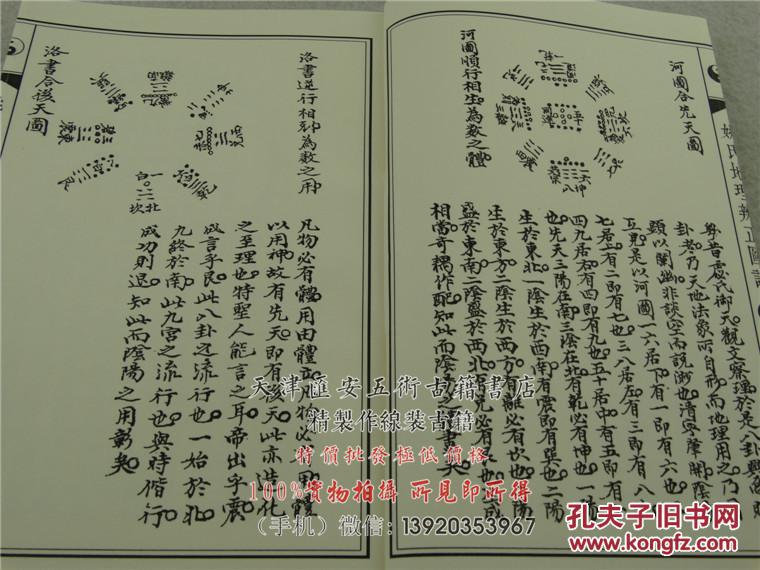 河圖合先天圖
河圖順行相生為数之體
卦者乃天地法象所自形而地理用之乃
頭以闡幽非談空而說渺也清寧肇闢陰
互見是以河圖一六居下有一即有六也
七居上有二即有七也三八居左有三即有八
四九居右有四即有九也五十居中有五即有
也先天三陽在南三陰在北有乾必有坤也一陽
生於東北一陰生於西南有震即有巽也二陽
生於東方二陰生於西方有離必有坎也
盛於東南二陰盛於西北
相當奇耦作配知此而陰
洛書逆行相尅為数之用
洛書合後天圖
一北
白
坎
凡物必有體用由體
以用神故有先天即有後天此亦造化
之至理也特聖人能言之耳帝出乎震
成言乎艮此八卦之流行也一始於北
九終於南此九宮之流行也與時偕行
成功則退知此而陰陽之用彰矣
天津匯安五術古籍書店
精製作線裝古籍
特價批發極低價格
100%實物拍攝 所見即所得
（手机）微信：13920353967
孔夫子旧书网
www.kongfz.com